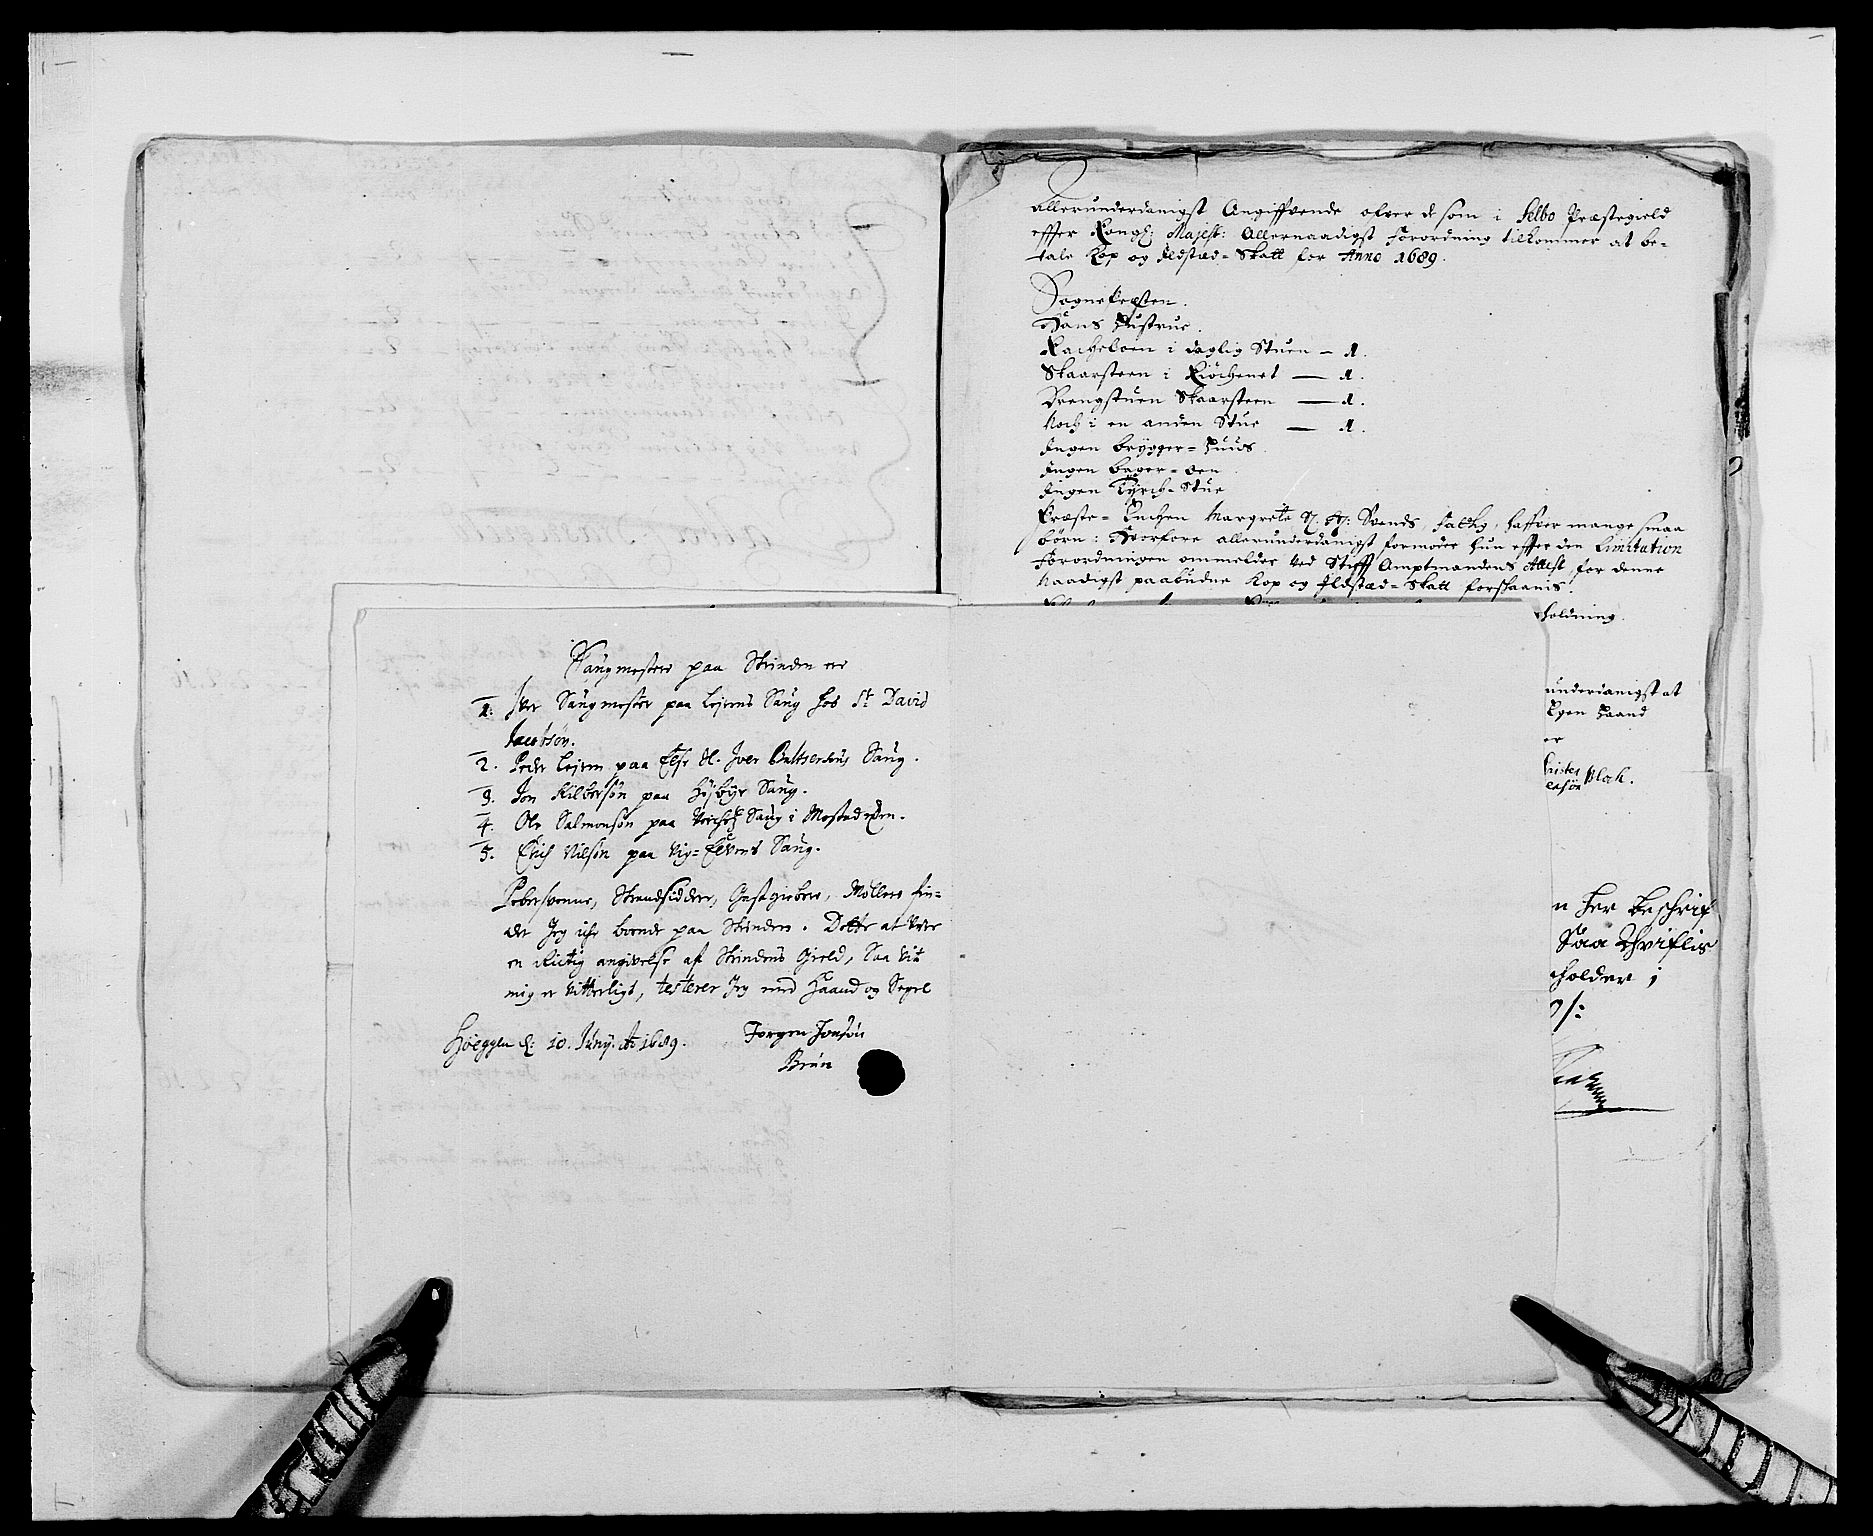 Allerunderdanigst Angiffvende ofver de som i Selbo Præstegield
effter Kongl: Majest: Allernaadigst Forordning tilkommer at be-
tale Kop og Ildstæd-Skatt for Anno 1689.
Sogne Præsten.
Hans Hustrue.
Kachelofn i daglig Stuen - 1.
Skaarsteen i Kiöchenet - 1.
Drengstuen Skaarsteen - 1.
Noch i en anden Stue - 1.
Ingen brygger-Huus.
Ingen bager-oen
Ingen Tyrck-Stue
Præste-Enchen Margrete Sl. Hr: Svends, fattig, haffver mange smaa
börn: Hvorfore allerunderdanigst formoder hun effter den Limitation
Forordningen ommelder ved Stifft Amptmandens Attest, for denne
Naadigst paabudne Kop og Ildstæd-Skatt forskaanis.
holdning.
underdanigst at
Egen Haand
er
Bloch.
n her beskrif
Saa Thviflis
holder i
Saugmestere paa Strinden ere
1. Iver Saugmester paa Lejrens Saug hos Sr. David
Jacobsön.
2. Peder Lejren paa Else Sl. Iver Baltsersöns Saug.
3. Jon Kilbersön paa Højbye Saug.
4. Ole Salmonsön paa Saug i Mostadmarken.
5. Erich Nilsön paa Vig-Elvens Saug.
Pebersvenne, Strandsiddere, Gestgiebere, Möllere fin-
der Jeg iche boende paa Strinden. Dette at være
en Rictig angivelse af Strindens Gield, Saa vit
mig er vitterligt, testerer Jeg med Haand og Segel
Höeggen d: 10. Juny. Ao 1689.
Jorgen Jonsön
Brun